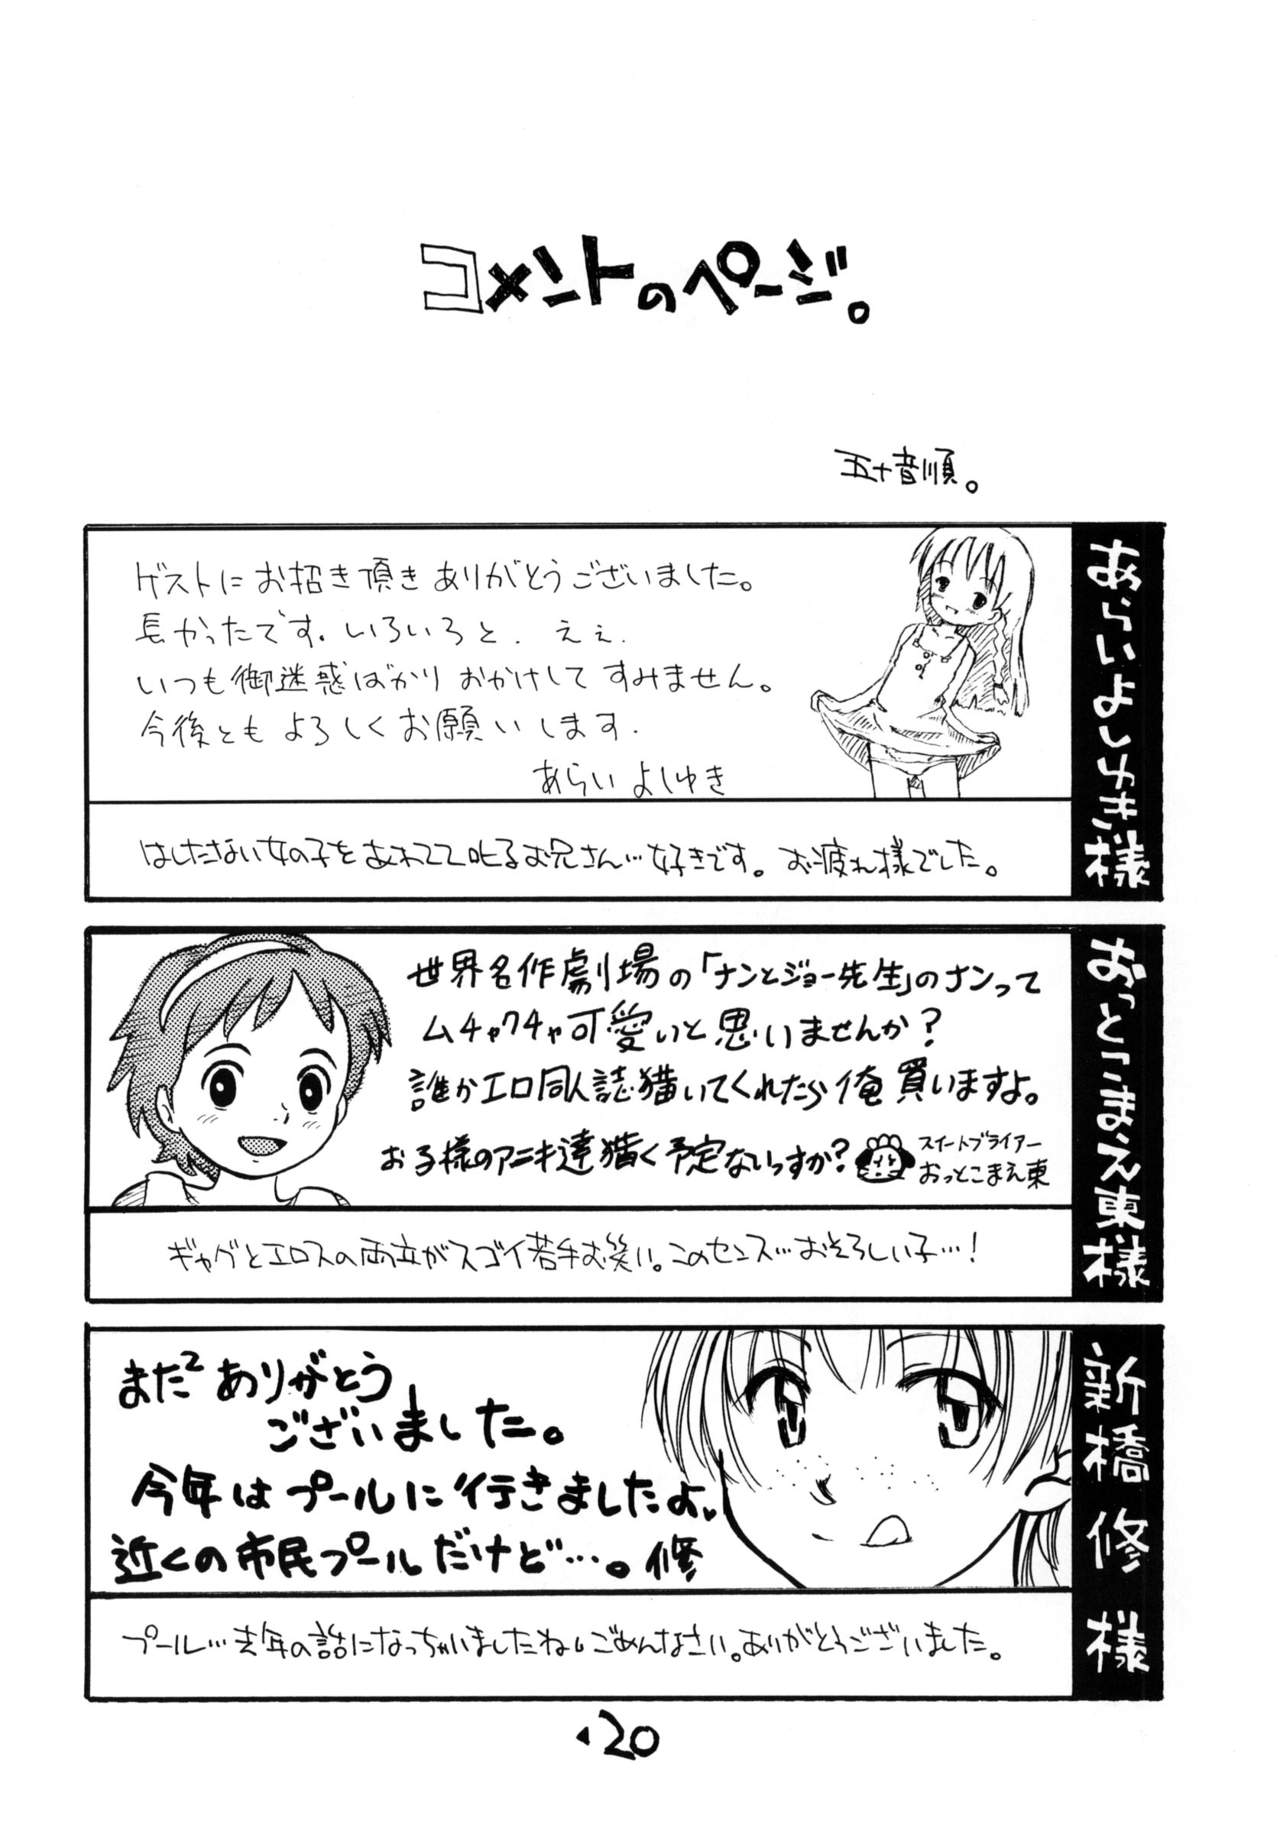 コメントのページ。
五十音順。
あらいよしゆき様
ゲストにお招き頂きありがとうございました。
長かったです。いろいろと．ええ．
いつも御迷惑ばかりおかけしてすみません。
今後ともよろしくお願いします．
あらいよしゆき
はしたない女の子をあわてて叱るお兄さん…好きです。お疲れ様でした。
おっとこまえ東様
世界名作劇場の「ナンとジョー先生」のナンって
ムチャクチャ可愛いと思いませんか？
誰かエロ同人誌描いてくれたら俺買いますよ。
お子様のアニキ達描く予定ないっすか？
スイートブライアー
おっとこまえ東
ギャグとエロスの両立がスゴイ若手お笑い。このセンス…おそろしい子…！
新橋修様
また²ありがとう
ございました。
今年はプールに行きましたよ、
近くの市民プールだけど…。修
プール…去年の話になっちゃいましたね。ごめんなさい。ありがとうございました。
20